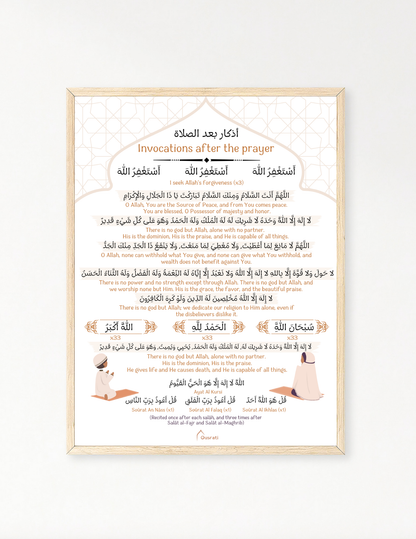 أذكار بعد الصلاة
Invocations after the prayer
أَسْتَغْفِرُ اللَّه أَسْتَغْفِرُ اللَّه أَسْتَغْفِرُ اللَّه
I seek Allah's Forgiveness (x3)
اللَّهُمَّ أَنْتَ السَّلَامُ وَمِنْكَ السَّلَامُ تَبَارَكْتَ يَا ذَا الْجَلَالِ وَالْإِكْرَامِ
O Allah, You are the Source of Peace, and from You comes peace.
You are blessed, O Possessor of majesty and honor.
لَا إِلَهَ إِلَّا اللَّهُ وَحْدَهُ لَا شَرِيكَ لَهُ لَهُ الْمُلْكُ وَلَهُ الْحَمْدُ وَهُوَ عَلَى كُلِّ شَيْءٍ قَدِيرٌ
There is no god but Allah, alone with no partner.
His is the dominion, His is the praise, and He is capable of all things.
اللَّهُمَّ لَا مَانِعَ لِمَا أَعْطَيْتَ، وَلَا مُعْطِيَ لِمَا مَنَعْتَ، وَلَا يَنْفَعُ ذَا الْجَدِّ مِنْكَ الْجَدُّ
O Allah, none can withhold what You give, and none can give what You withhold, and
wealth does not benefit against You.
لَا حَوْلَ وَلَا قُوَّةَ إِلَّا بِاللهِ لَا إِلَهَ إِلَّا اللَّهُ وَلَا نَعْبُدُ إِلَّا إِيَّاهُ لَهُ النِّعْمَةُ وَلَهُ الْفَضْلُ وَلَهُ الثَّنَاءُ الْحَسَنُ
There is no power and no strength except through Allah. There is no god but Allah, and
we worship none but Him. His is the grace, the favor, and the beautiful praise.
لَا إِلَهَ إِلَّا اللَّهُ مُخْلِصِينَ لَهُ الدِّينَ وَلَوْ كَرِهَ الْكَافِرُونَ
There is no god but Allah, we dedicate our religion to Him alone, even if
the disbelievers dislike it.
سُبْحَانَ اللَّهِ الْحَمْدُ لِلَّهِ اللَّهُ أَكْبَرُ
x33 x33 x33
لَا إِلَهَ إِلَّا اللَّهُ وَحْدَهُ لَا شَرِيكَ لَهُ، لَهُ الْمُلْكُ وَلَهُ الْحَمْدُ، يُحْيِي وَيُمِيتُ، وَهُوَ عَلَى كُلِّ شَيْءٍ قَدِيرٌ
There is no god but Allah, alone with no partner.
His is the dominion, His is the praise.
He gives life and He causes death, and He is capable of all things.
اللَّهُ لَا إِلَهَ إِلَّا هُوَ الْحَيُّ الْقَيُّومُ
Ayat Al Kursi
قُلْ هُوَ اللَّهُ أَحَدٌ قُلْ أَعُوذُ بِرَبِّ الْفَلَقِ قُلْ أَعُوذُ بِرَبِّ النَّاسِ
Surat An Nâss (x1) Surat Al Falaq (x1) Surat Al Ikhlas (x1)
(Recited once after each salât, and three times after
Salât al-Fajr and Salât al-Maghrib)